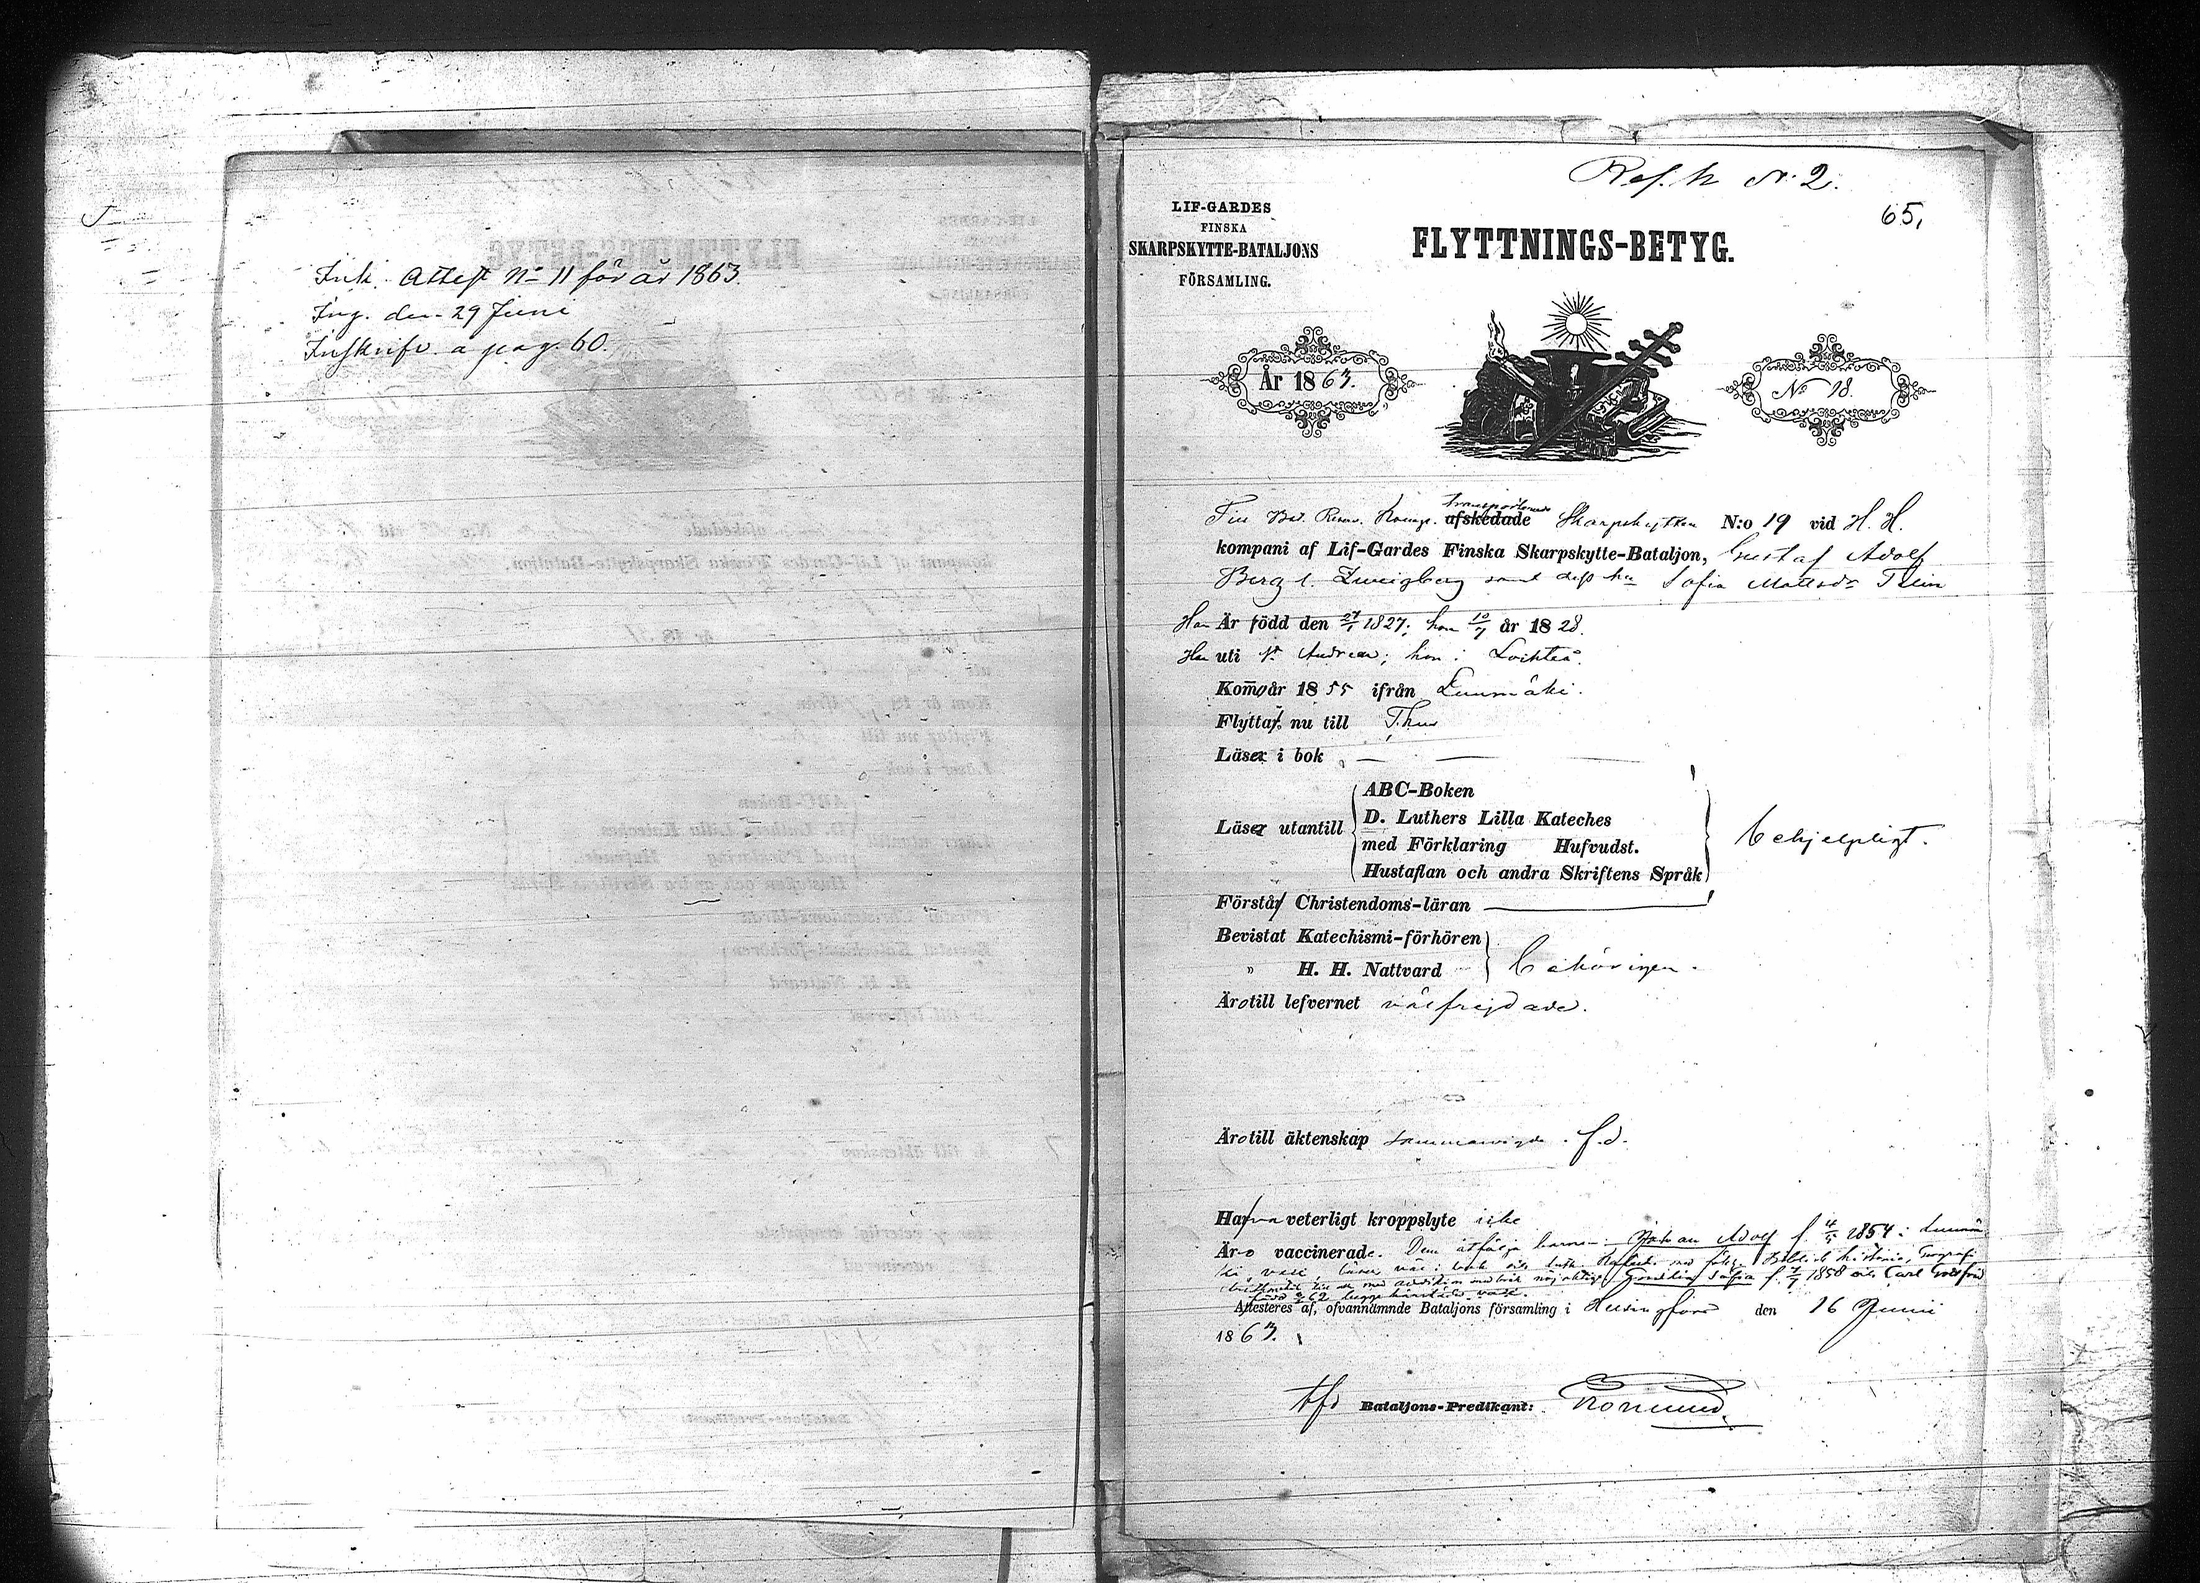 Ink. Attest No 11 för år 1863.
Ing. den 29 Juni
Inskrifv. a pag. 60.
Res. k No 2.
65,
LIF-GARDES
FINSKA
SKARPSKYTTE-BATALJONS
FÖRSAMLING.
FLYTTNINGS-BETYG.
År 1863.
No 18.
Till Bat. Reserv. Komp. transporterade
afskedade Skarpskytten N:o 19 vid H. H.
kompani af Lif-Gardes Finska Skarpskytte-Bataljon, Gustaf Adolf
Berg l. Zweigberg samt dess hu Sofia Mattsdr
Han Är född den 27/1 1827; hon 10/7 år 1828.
Han uti St Andreae; hon i Lochteå.
Kom år 1855 ifrån Luumäki.
Flytta nu till
Läser i bok
ABC-Boken
Läser utantill D. Luthers Lilla Kateches
med Förklaring Hufvudst.
Hustaflan och andra Skriftens Språk
behjelpligt.
Förstår Christendoms-läran
Bevistat Katechismi-förhören
" H. H. Nattvard
behörigen.
Äro till lefvernet välfrejdade.
Äro till äktenskap sammanvigde. f.d.
Hafva veterligt kroppslyte icke
Äro vaccinerade. Dem åtfölja barnen: Johan Adolf f. 4/5 1854 i Luumä
ki, vacc, läser i bok Biblisk historia, Geografi
Sofia f. 7/7 1858 och Carl Gottfrid
62 begge vacc.
Attesteras af, ofvannämnde Bataljons församling i Helsingfors den 16 Junii
1863.
Bataljons-Predikant: